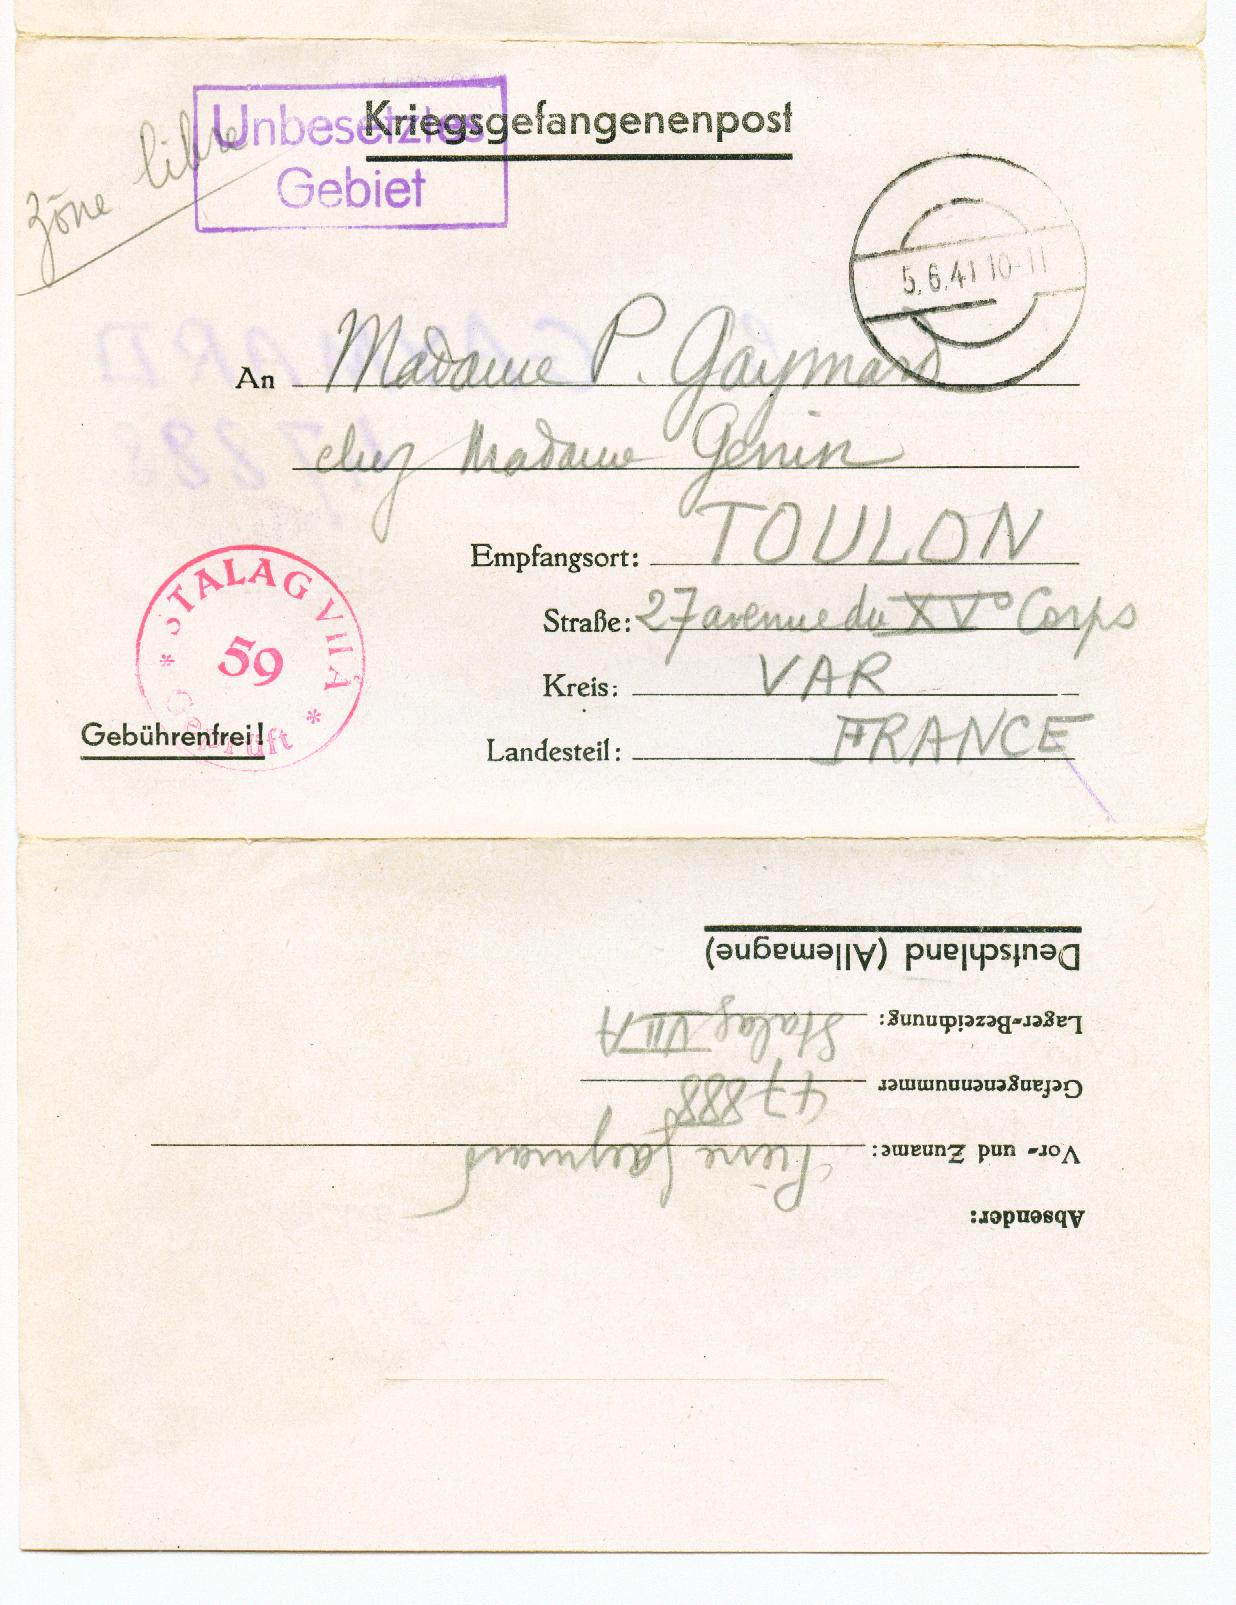 Kriegsgefangenenpost
Unbesetztes
Gebiet
zône libre
5.6.41 10-11
An Madame P. Gaymard
chez Madame Genin
Empfangsort: TOULON
Straße: 27 avenue du XV° Corps
Kreis: VAR
Landesteil: FRANCE
STALAG VII A
59
Geprüft
Gebührenfrei!
GAYMARD
47888
Absender:
Vor- und Zuname: Pierre Gaymard
Gefangenennummer 47888
Lager-Bezeichnung: Stalag VII A
Deutschland (Allemagne)